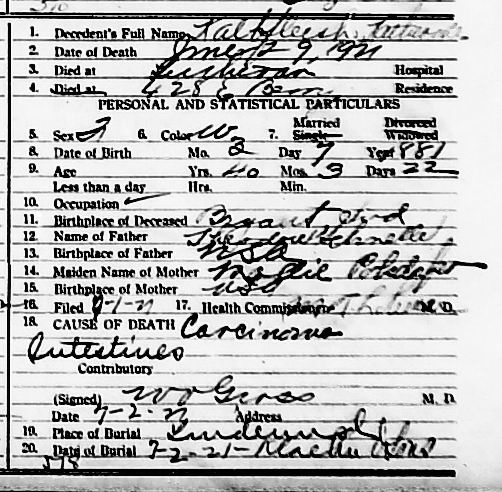 1. Decedent's Full Name Kalbfleish,
2. Date of Death June 29, 1921
3. Died at Lutheran Hospital
4. Died at 428 E Residence
PERSONAL AND STATISTICAL PARTICULARS
Married Divorced
5. Sex F 6. Color W. 7. Single Widowed
8. Date of Birth Mo. 2 Day 7 Year 881
9. Age Yrs. 40 Mos. 3 Days 22
Less than a day Hrs. Min.
10. Occupation
11. Birthplace of Deceased Bryant Ind
12. Name of Father Theodore
13. Birthplace of Father USA
14. Maiden Name of Mother
15. Birthplace of Mother USA
16. Filed 7-1-21 17. Health Commissioner M. D.
18. CAUSE OF DEATH Carcinoma
Intestines
Contributory
(Signed) W O Gross M. D.
Date 7-2-21 Address
19. Place of Burial Lindenwood
20. Date of Burial 7-2-21
578